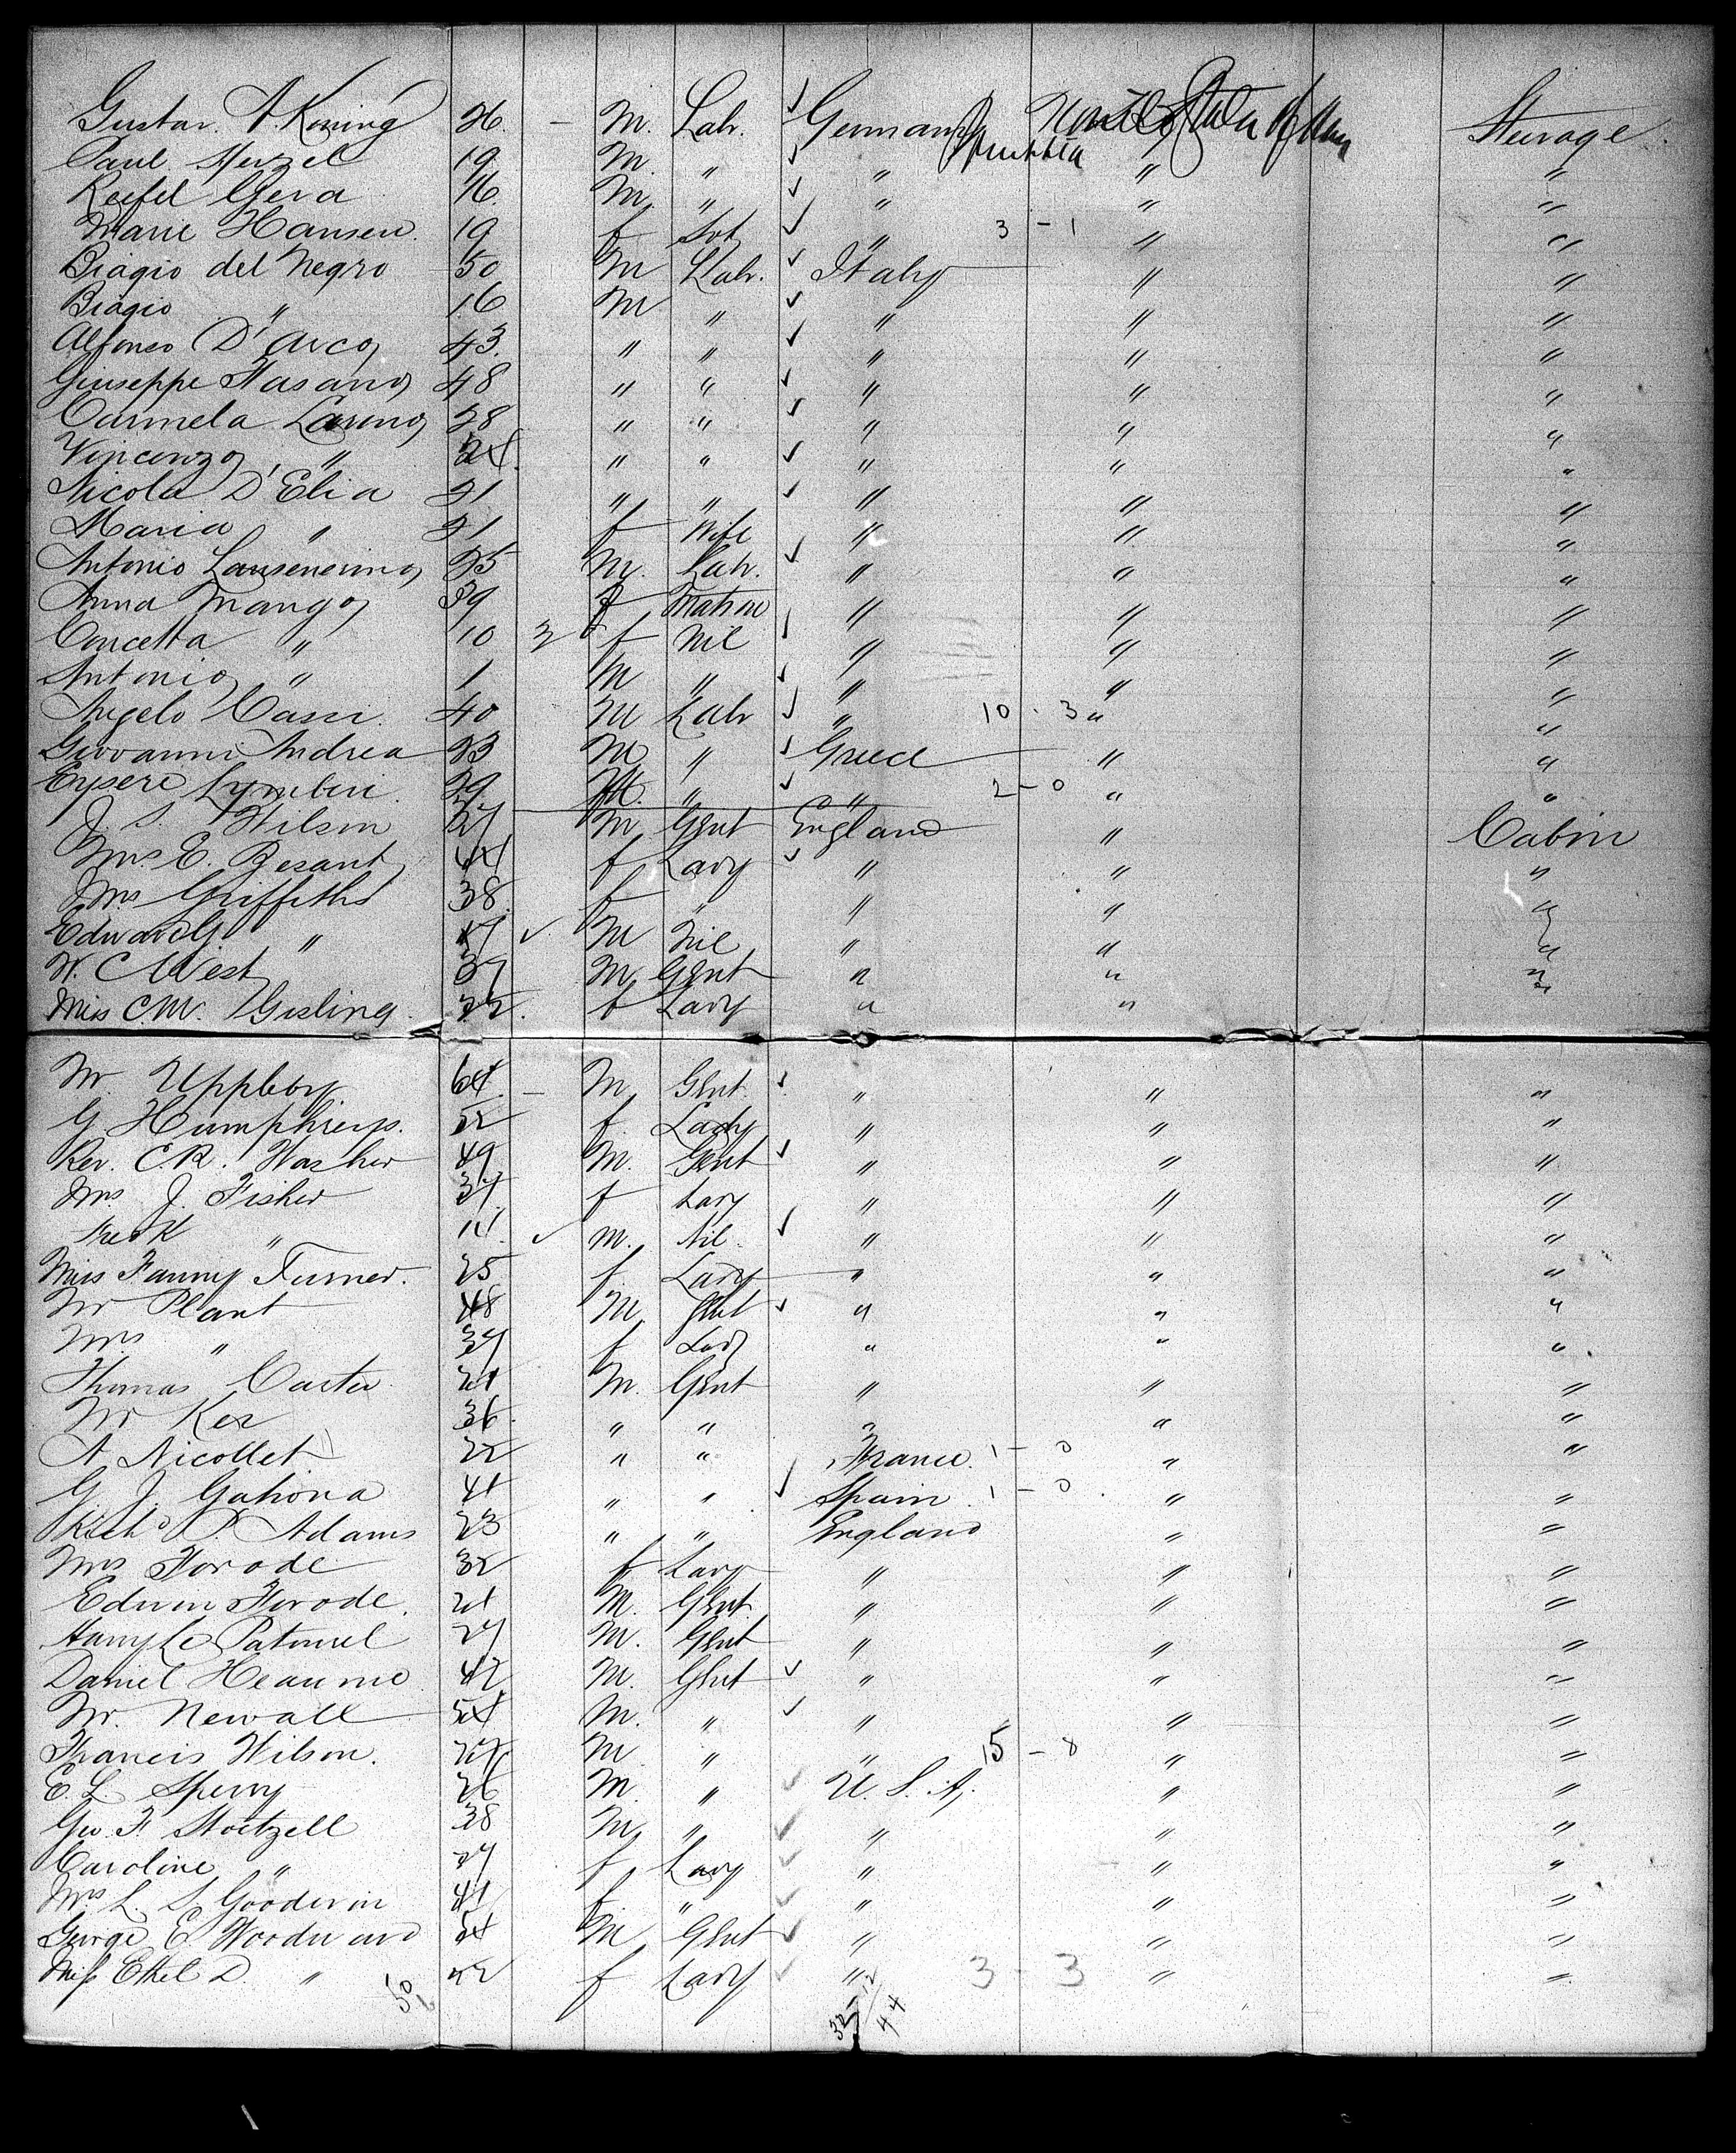 Gustav. A. Koning 26. — M. Lab. ✓ Germany Prussia United States of Am Steerage
Paul Herzel 19. M. " ✓ " " "
Reifel Gera 16. M. " ✓ " " "
Marie Hansen. 19 f Svt ✓ " 3 - 1 " "
Biagio del Negro 50 M Lab. ✓ Italy " "
Biagio " 16 M " ✓ " " "
Alfonso D'Arco 43. " " ✓ " " "
Giuseppe Fasano 48 " " ✓ " " "
Carmela 28 " " ✓ " " "
Vincenzo " 24. " " ✓ " " "
Nicola D'Elia 21 " " ✓ " " "
Maria " 21 f Wife " " "
Antonio 25 M. Lab. ✓ " " "
Anna Mango 39 f Matron " " "
Concetta " 10 3 f Nil ✓ " " "
Antonio " 1 M " ✓ " " "
Angelo 40 M Lab ✓ " 10 - 3 " "
Giovanni Andrea 23 M " ✓ Greece " "
29. M. " ✓ " 2 - 0 " "
J. S. Wilson 27 M Gent England " Cabin
Mrs E. Besant 44 f Lady ✓ " " "
Mrs Griffiths 38 f " " " "
Edward G. " 17 ✓ M Nil " " "
W. C. West 37 M Gent " " "
Miss C. M. Gisling. 22. f Lady " " "
Mr. Uppleby 64. — M. Gent. ✓ " " "
G. Humphreys. 52 f. Lady " " "
Rev. C. R. 49 M. Gent ✓ " " "
Mrs J. Fisher 37. f Lady " " "
Fredk " 14. ✓ M. Nil. ✓ " " "
Miss Fanny Turner. 25 f. Lady " " "
Mr Plant 48 M. Gent ✓ " " "
Mrs " 37 f Lady " " "
Thomas Carter 24 M. Gent " " "
Mr Ker 36. " " " " "
A Nicollet 22 " " France. 1 - 0 " "
G. J. Gahona 41 " " ✓ Spain. 1 - 0. " "
Richd P. Adams 23 " " England " "
Mrs Forode 32 f Lady " " "
Edwin Forode. 21 M. Gent. " " "
Harry Le Patourel 27 M. Gent " " "
Daniel Heaume 42 M. Gent ✓ " " "
Mr. Newall 54 M. " ✓ " " "
Francis Wilson. 27 M " " 15 - 8 " "
E. L. Sperry 26 M. " ✓ U. S. A. " "
Geo. F. Stoetzell 38 M. " ✓ " " "
Caroline " 27 f Lady ✓ " " "
Mrs L. S. Gooderin 41 f. " ✓ " " "
George E. Woodward 54 M Gent ✓ " " "
Miss Ethel D. " 22 f Lady ✓ " 3 - 3 " "
50
32 - 12
44